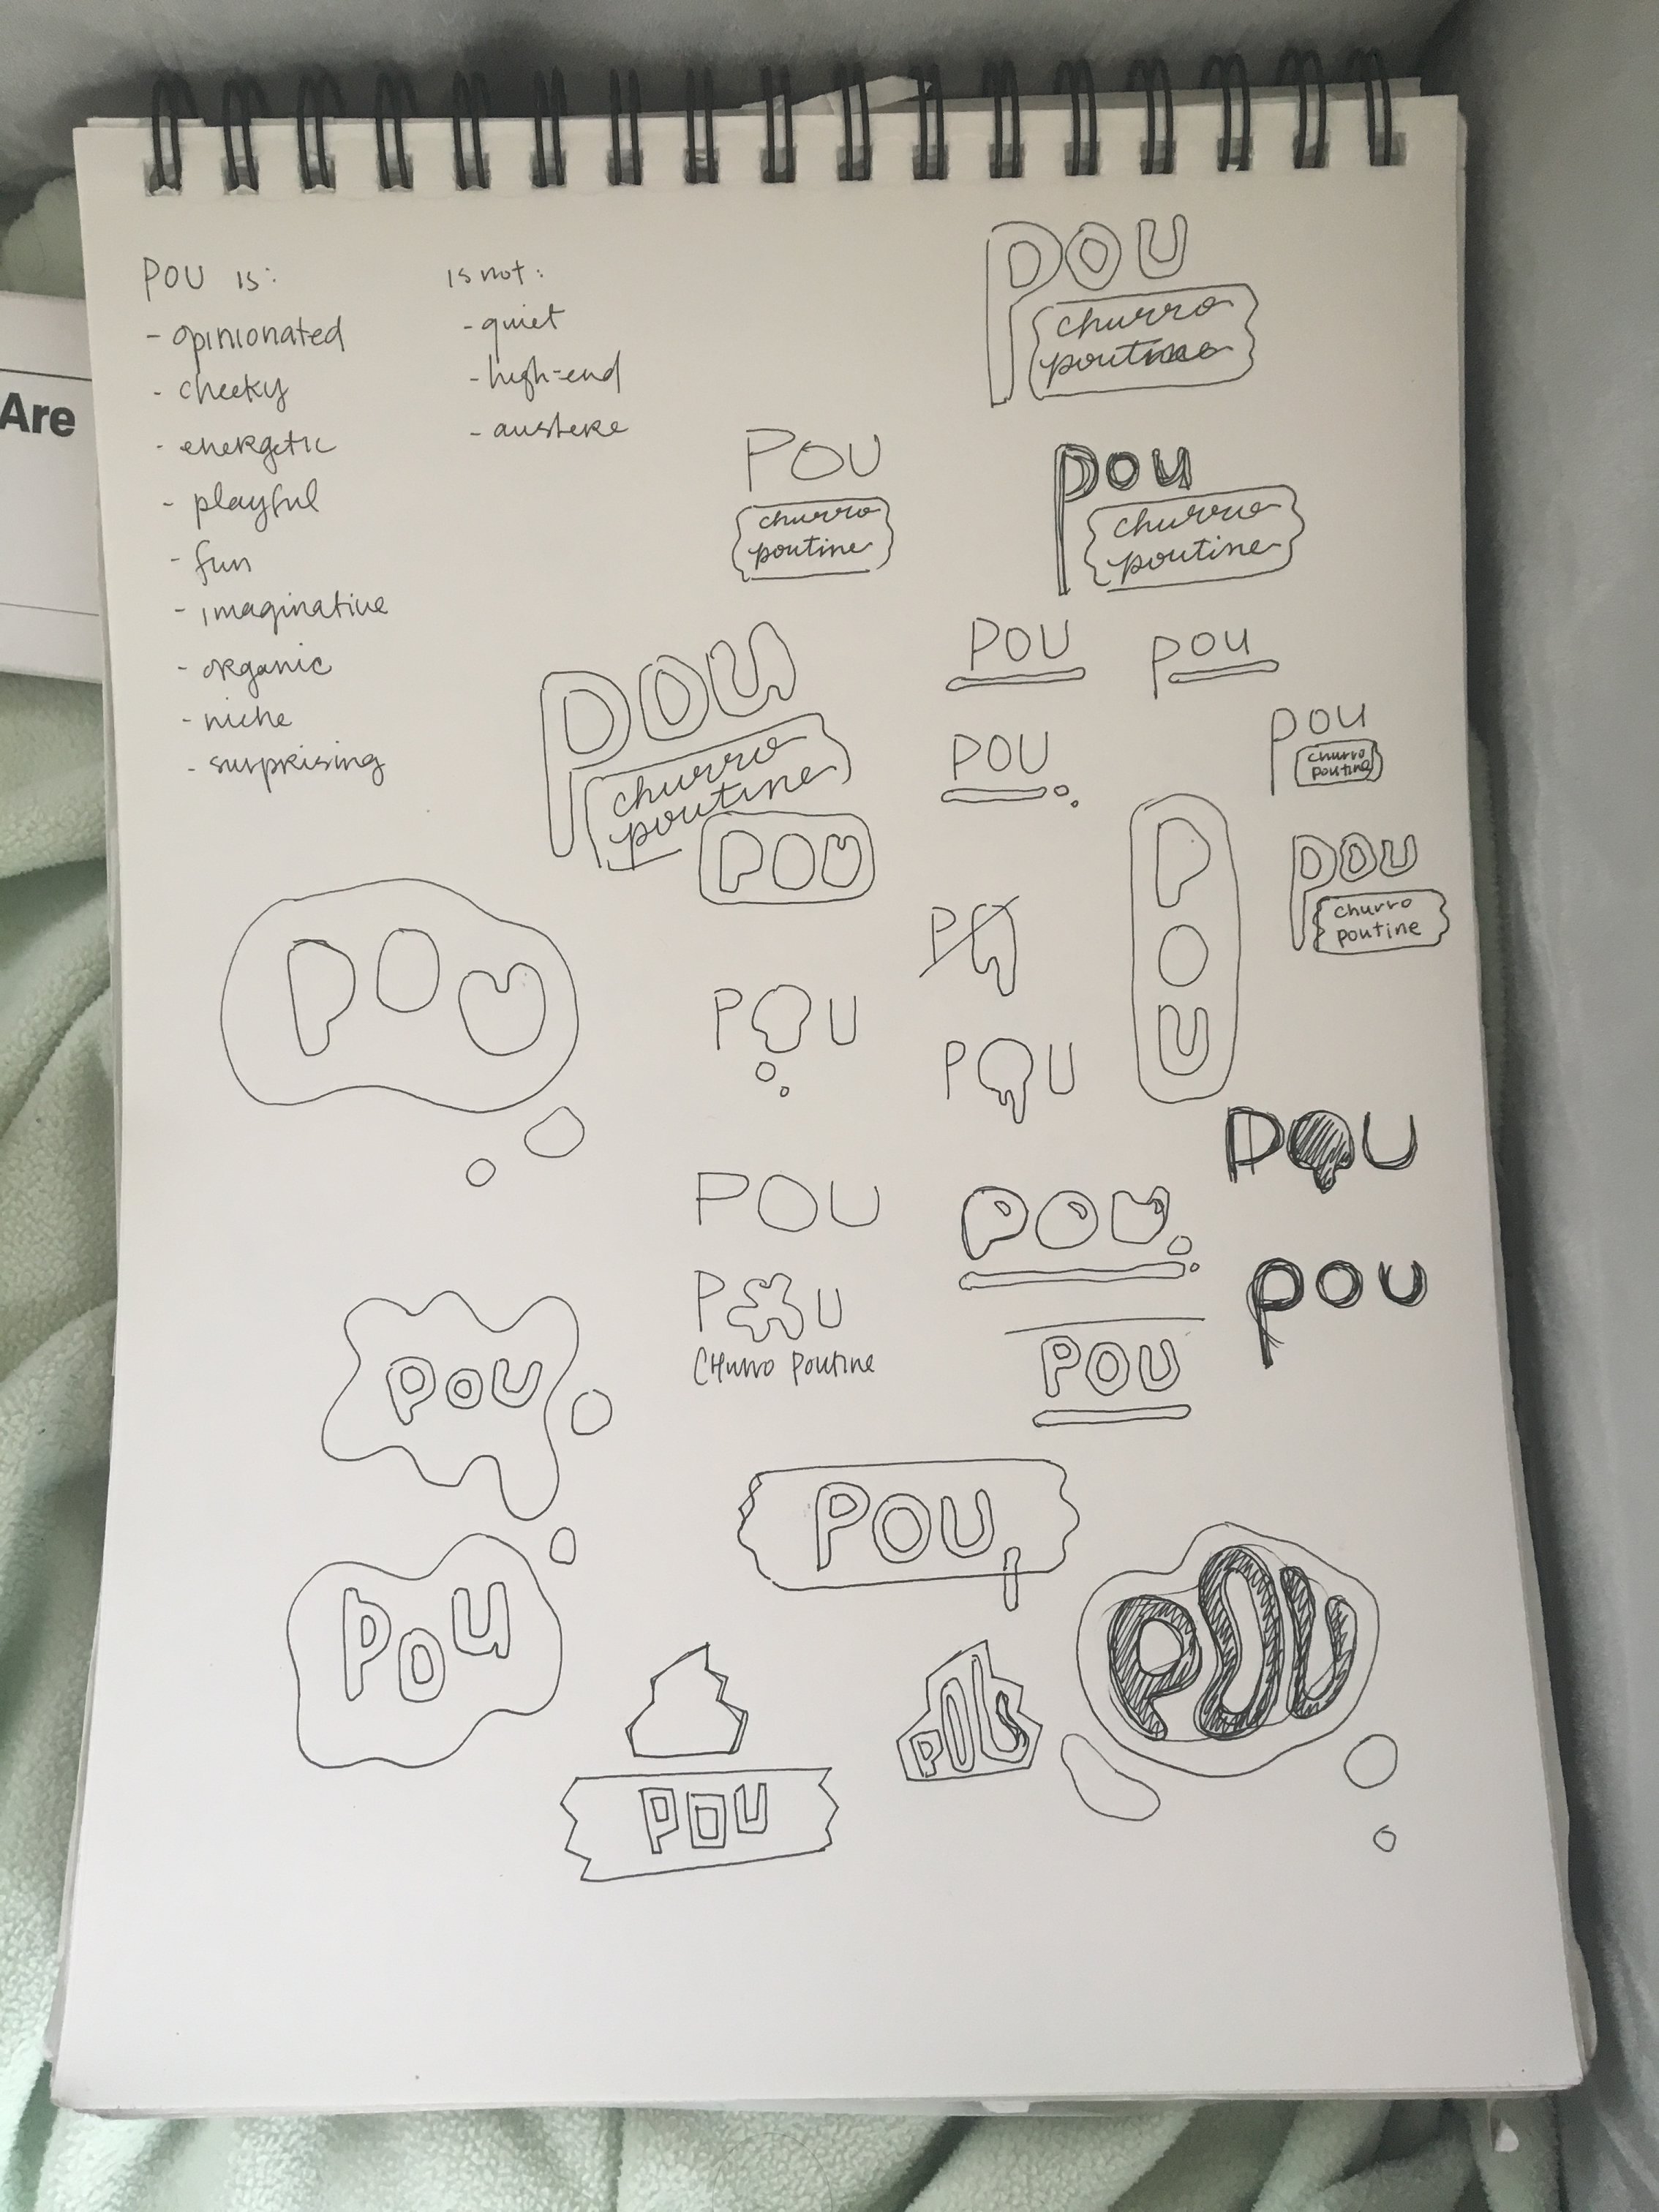 Are
POU is:
- opinionated
- cheeky
- energetic
- playful
- fun
- imaginative
- organic
- niche
- surprising
is not:
- quiet
- high-end
- austere
POU
churro
POU
churro
poutine
pou
churro
poutine
POU
churro
poutine
POU
pou
POU
pou
churro
poutine
POU
POU
POU
POU
churro
poutine
POU
POU
POU
POU
POU
POU
pou
POU
CHurro Poutine
POU
POU
POU
POU
POU
POU
POU
POU